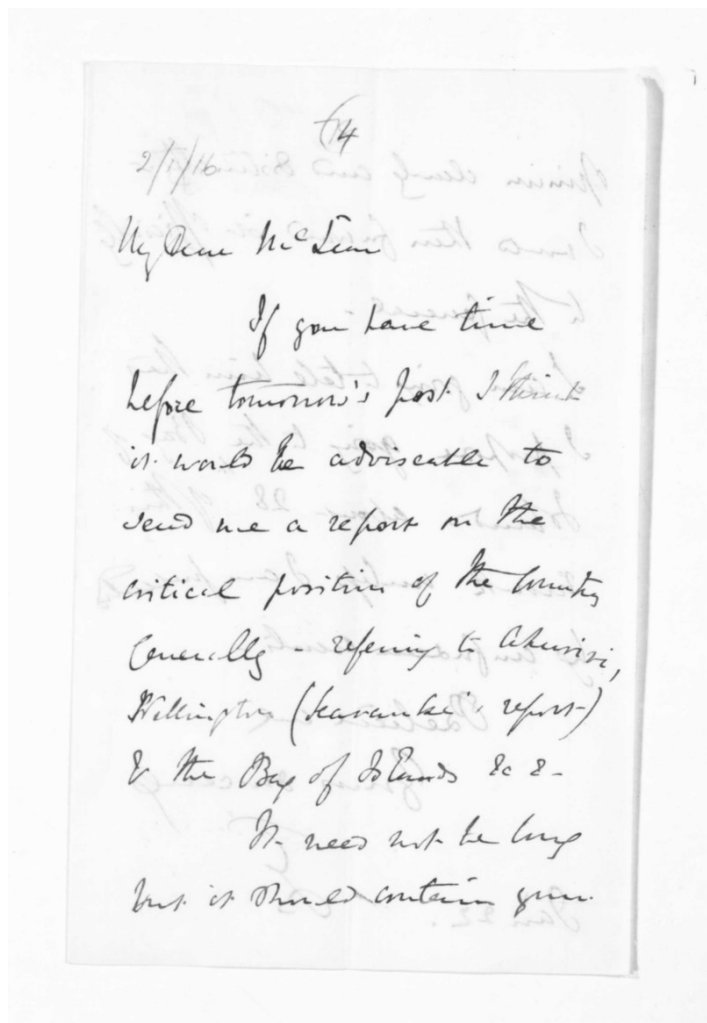 14
My Dear McLean
If you have time
before tomorrow's post I think
it would be adviseable to
send me a report on the
critical position of the Country
Generally - referring to Ahuriri,
Wellington (Searancke's report)
& the Bay of Islands &c &-
It need not be long
but it should contain your